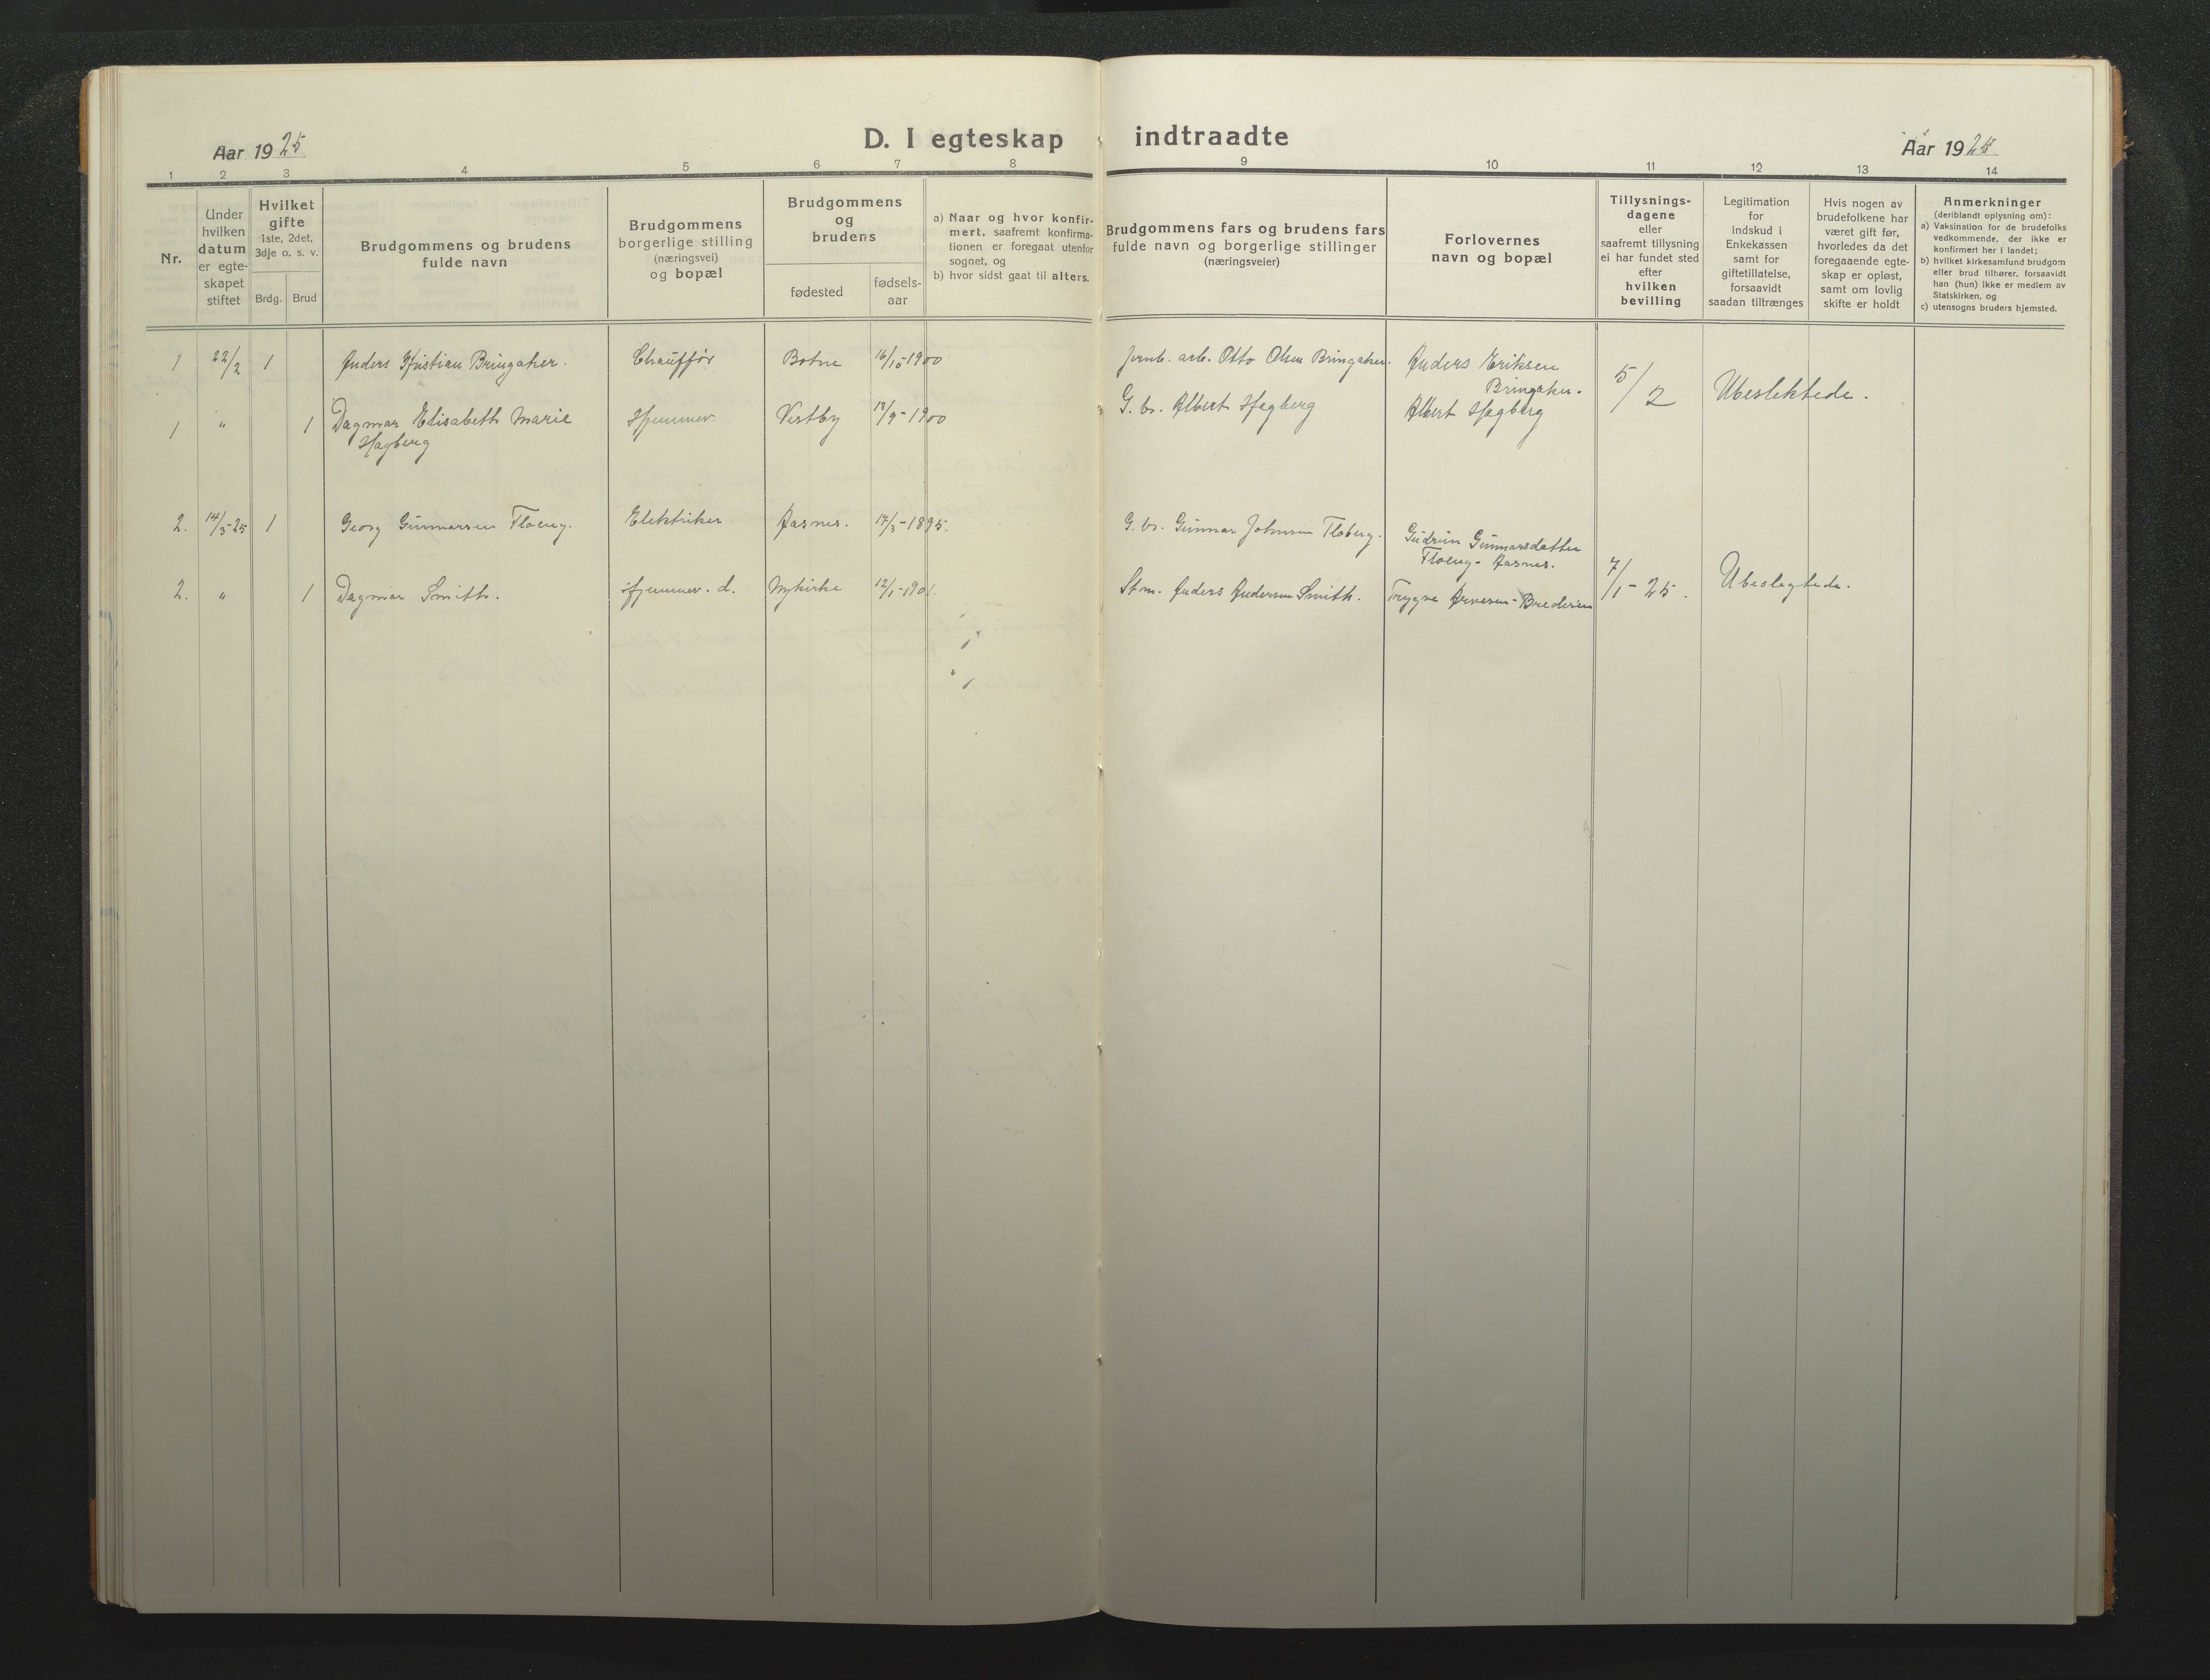 Aar 1925
D. I egteskap indtraadte
Aar 1925
1 2 3 4 5 6 7 8 9 10 11 12 13 14
Nr.
Under
hvilken
datum
er egte-
skapet
stiftet
Hvilket
gifte
1ste, 2det,
3dje o. s. v.
Brdg. Brud
Brudgommens og brudens
fulde navn
Brudgommens
borgerlige stilling
(næringsvei)
og bopæl
Brudgommens
og
brudens
fødested
fødsels-
aar
a) Naar og hvor konfir-
mert, saafremt konfirma-
tionen er foregaat utenfor
sognet, og
b) hvor sidst gaat til alters.
Brudgommens fars og brudens fars
fulde navn og borgerlige stillinger
(næringsveier)
Forlovernes
navn og bopæl
Tillysnings-
dagene
eller
saafremt tillysning
ei har fundet sted
efter
hvilken
bevilling
Legitimation
for
indskud i
Enkekassen
samt for
giftetillatelse,
forsaavidt
saadan tiltrænges
Hvis nogen av
brudefolkene har
været gift før,
hvorledes da det
foregaaende egte-
skap er opløst,
samt om lovlig
skifte er holdt
Anmerkninger
(deriblandt oplysning om):
a) Vaksination for de brudefolks
vedkommende, der ikke er
konfirmert her i landet;
b) hvilket kirkesamfund brudgom
eller brud tilhører, forsaavidt
han (hun) ikke er medlem av
Statskirken, og
c) utensogns bruders hjemsted.
1 22/2 1 Anders Kristian Bringaker. Chauffør Botne 16/10-1900 Jernb. arb. Otto Olsen Bringaker. Anders Eriksen
Bringaker.
5/2 Ubeslektede.
1 " 1 Dagmar Elisabeth Marie Hjemmev Vestby /9-1900 G. br. Albert Hagberg Albert Hagberg
Hagberg
2. 14/3-25 1 Georg Gunnarsen Floeng. Elektriker Aasnes. 17/3-1895. G. br. Gunnar Johnsen Gudrun Gunnarsdatter
Floeng-Aasnes.
7/1-25. Ubeslegtede.
2. " 1 Dagmar Smith. Hjemmev. d. Nykirke 12/1-1901. Stm. Anders Andersen Smith. Trygve Arvesen-